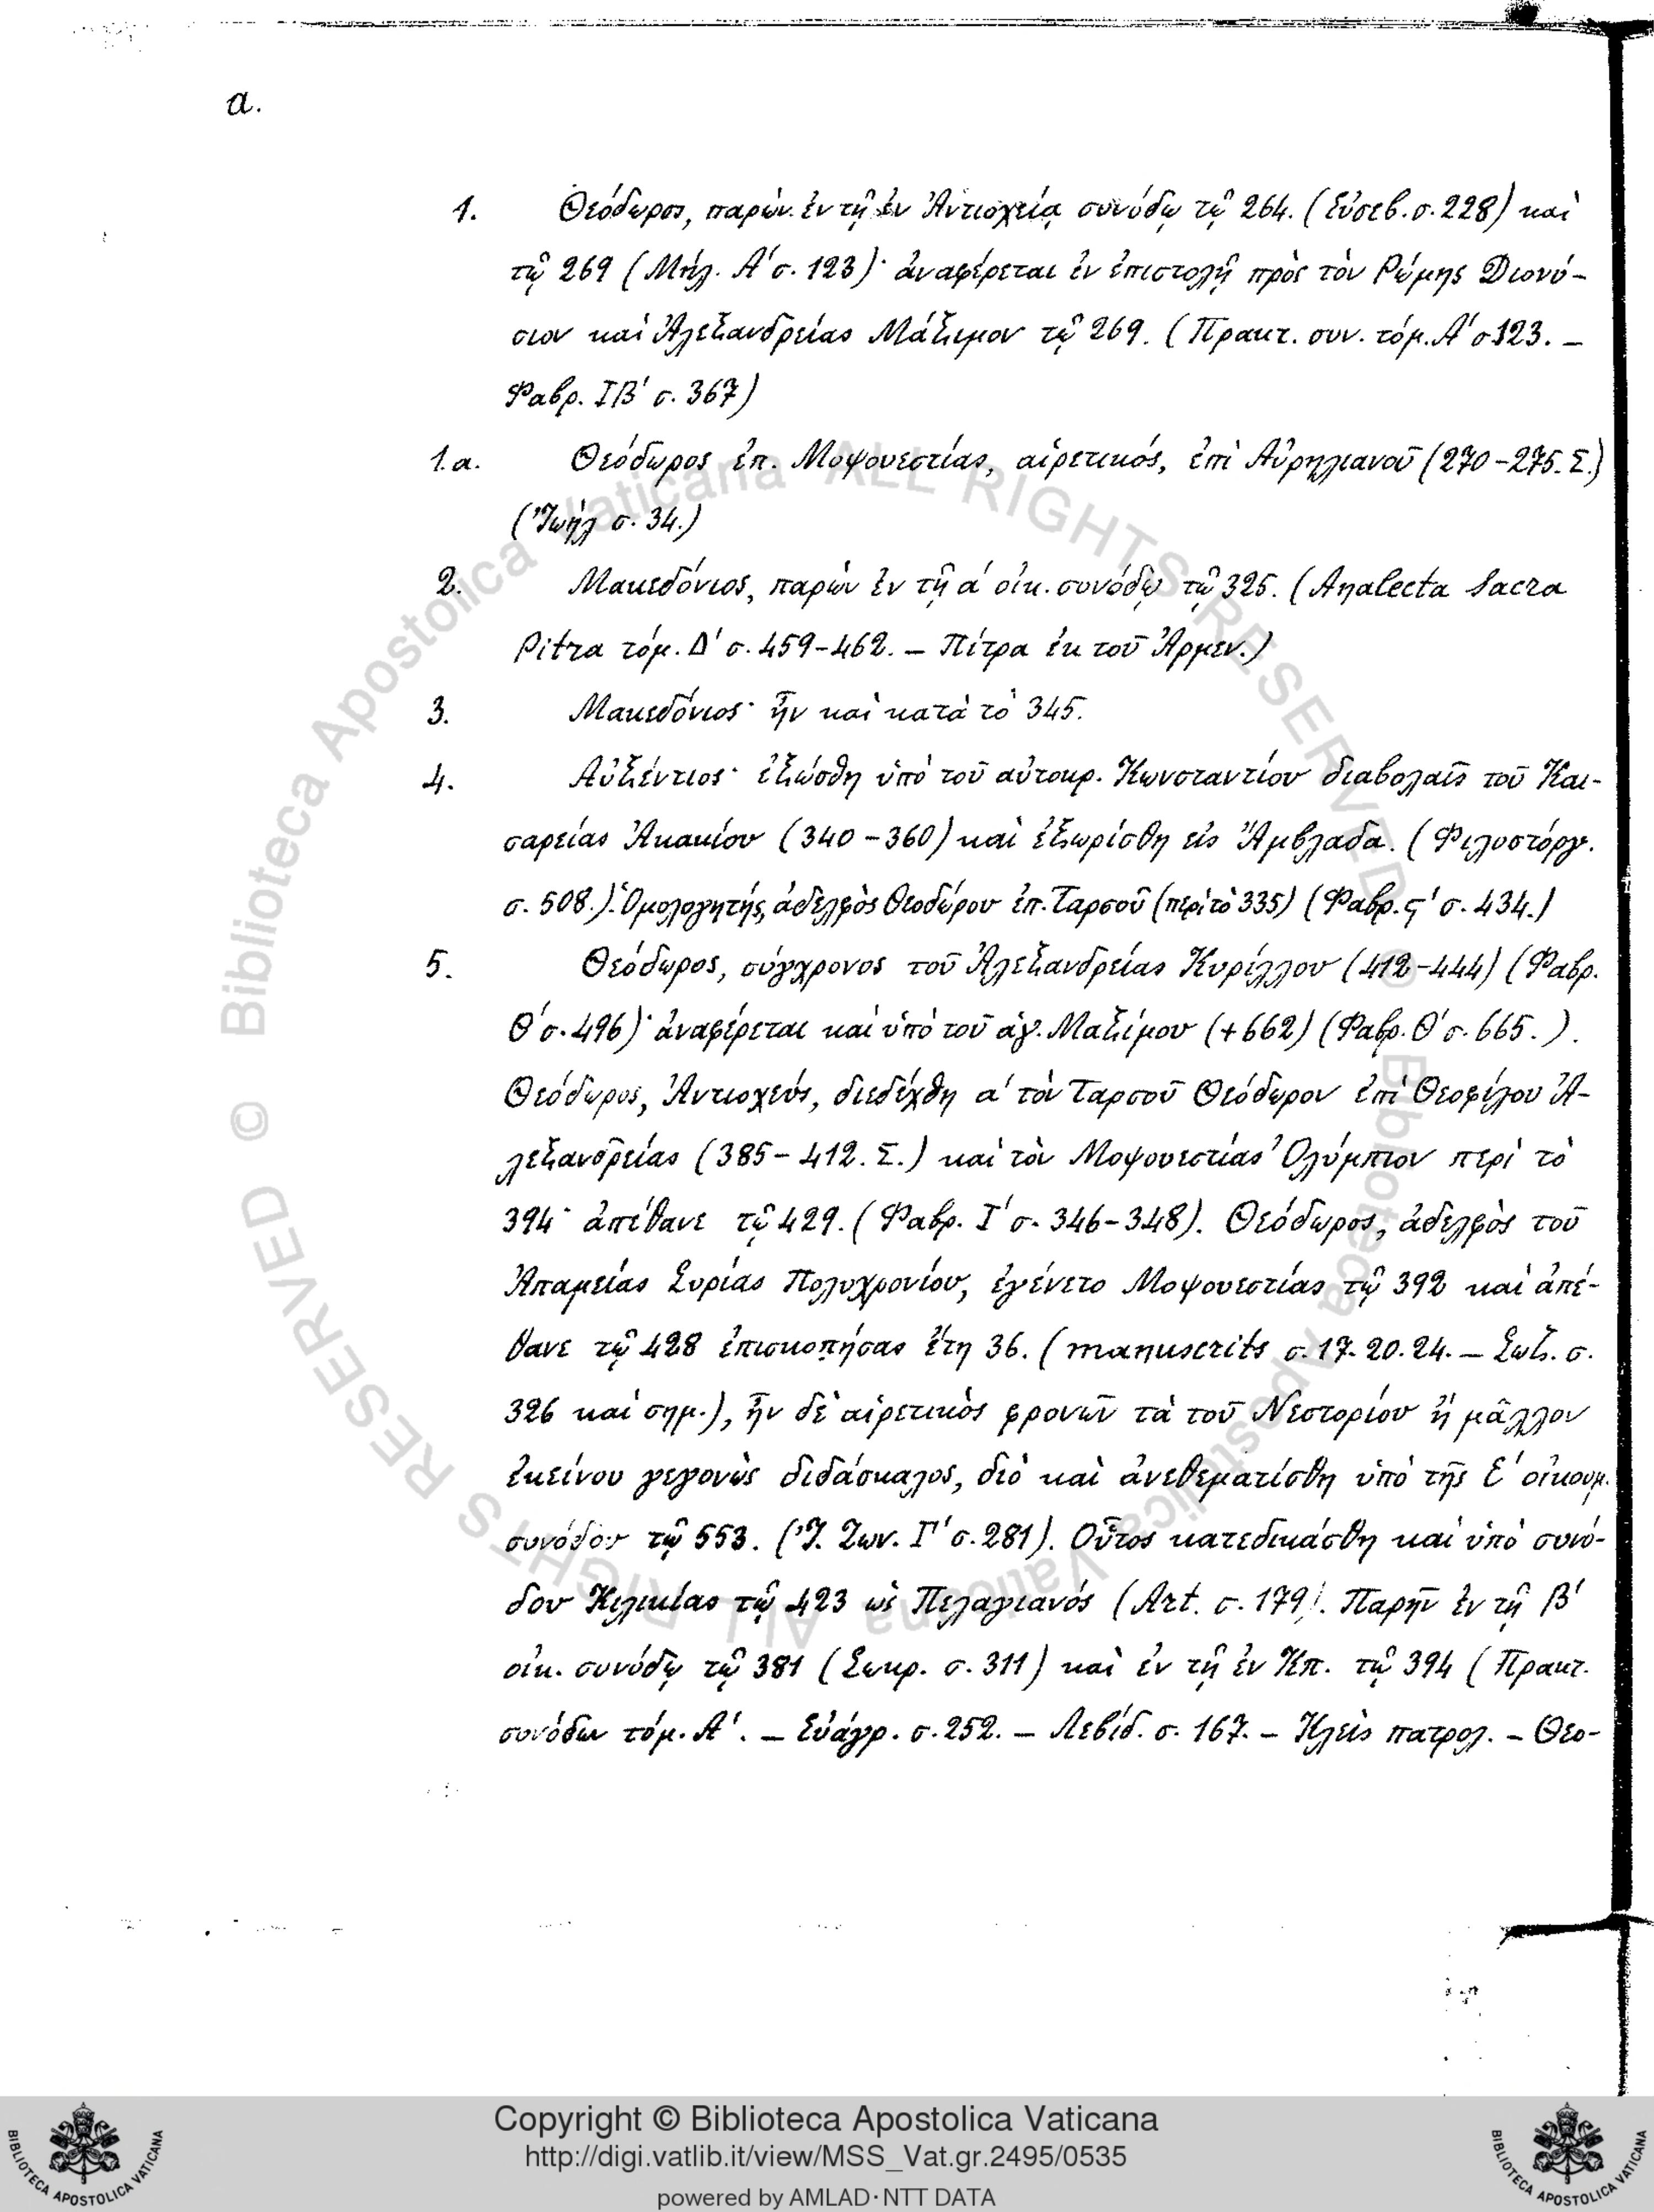 α.
1. Θεόδωρος, παρὼν ἐν τῇ ἐν Ἀντιοχείᾳ συνόδῳ τῷ 264. (Εὐσεβ. σ. 228) καὶ
τῷ 269 (Μήλ. Α' σ. 123)· ἀναφέρεται ἐν ἐπιστολῇ πρὸς τὸν Ῥώμης Διονύ-
σιον καὶ Ἀλεξανδρείας Μάξιμον τῷ 269. (Πρακτ. συν. τόμ. Α' σ 123. –
Φαβρ. ΙΒ' σ. 367)
1.α. Θεόδωρος ἐπ. Μοψουεστίας, αἱρετικός, ἐπὶ Αὐρηλιανοῦ (270-275. Σ.)
(Ἰωήλ σ. 34.)
2. Μακεδόνιος, παρὼν ἐν τῇ α' οἰκ. συνόδῳ τῷ 325. (Analecta Sacra
Pitra τόμ. Δ' σ. 459-462. – Πίτρα ἐκ τοῦ Ἀρμεν.)
3. Μακεδόνιος· ἦν καὶ κατὰ τὸ 345.
4. Αὐξέντιος· ἐξώσθη ὑπὸ τοῦ αὐτοκρ. Κωνσταντίου διαβολαῖς τοῦ Και-
σαρείας Ἀκακίου (340-360) καὶ ἐξωρίσθη εἰς Ἄμβλαδα. (Φιλοστόργ.
σ. 508.). Ὁμολογητής, ἀδελφὸς Θεοδώρου ἐπ. Ταρσοῦ (περὶ τὸ 335) (Φαβρ. ς' σ. 434.)
5. Θεόδωρος, σύγχρονος τοῦ Ἀλεξανδρείας Κυρίλλου (412-444) (Φαβρ.
Θ' σ. 496)· ἀναφέρεται καὶ ὑπὸ τοῦ ἁγ. Μαξίμου (+662) (Φαβρ. Θ' σ. 665.).
Θεόδωρος, Ἀντιοχεύς, διεδέχθη α' τὸν Ταρσοῦ Θεόδωρον ἐπὶ Θεοφίλου Ἀ-
λεξανδρείας (385-412. Σ.) καὶ τὸν Μοψουεστίας Ὀλύμπιον περὶ τὸ
394· ἀπέθανε τῷ 429. (Φαβρ. Ι' σ. 346-348). Θεόδωρος, ἀδελφὸς τοῦ
Ἀπαμείας Συρίας Πολυχρονίου, ἐγένετο Μοψουεστίας τῷ 392 καὶ ἀπέ-
θανε τῷ 428 ἐπισκοπήσας ἔτη 36. (manuscrits σ. 17. 20. 24. – Σωζ. σ.
326 καὶ σημ.), ἦν δὲ αἱρετικὸς φρονῶν τὰ τοῦ Νεστορίου ἢ μᾶλλον
ἐκείνου γεγονὼς διδάσκαλος, διὸ καὶ ἀνεθεματίσθη ὑπὸ τῆς Ε' οἰκουμ.
συνόδου τῷ 553. (Ἰ. Ζων. Γ' σ. 281). Οὗτος κατεδικάσθη καὶ ὑπὸ συνό-
δου Κιλικίας τῷ 423 ὡς Πελαγιανός (Art. σ. 179). Παρῆν ἐν τῇ β'
οἰκ. συνόδῳ τῷ 381 (Σωκρ. σ. 311) καὶ ἐν τῇ ἐν Κπ. τῷ 394 (Πρακτ.
συνόδων τόμ. Α'. – Εὐάγρ. σ. 252. – Λεβίδ. σ. 167. – Κλεὶς πατρολ. – Θεο-
© Biblioteca Apostolica Vaticana ALL RIGHTS RESERVED © Biblioteca Apostolica Vaticana ALL RIGHTS RESERVED
BIBLIOTECA APOSTOLICA VATICANA
Copyright © Biblioteca Apostolica Vaticana
http://digi.vatlib.it/view/MSS_Vat.gr.2495/0535
powered by AMLAD·NTT DATA
BIBLIOTECA APOSTOLICA VATICANA